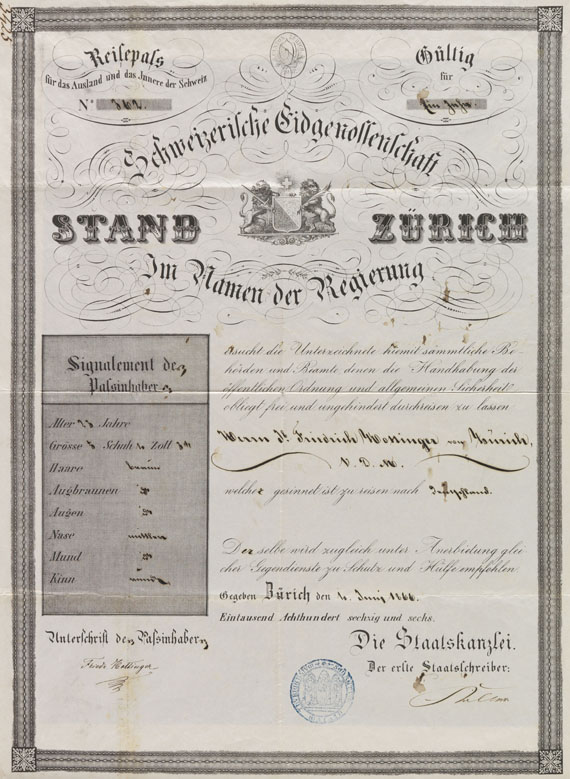 Reisepass
für das Ausland und das Innere der Schweiz
No 362.
Gültig
für
Ein Jahr.
Schweizerische Eidgenossenschaft
STAND ZÜRICH
Im Namen der Regierung
Signalement des
Passinhabers
Alter 23 Jahre
Grösse 5 Schuh Zoll
Haare braun
Augbraunen
Augen
Nase mittlere
Mund
Kinn rund
ersucht die Unterzeichnete hiemit sämmtliche Be-
hörden und Beamte denen die Handhabung der
öffentlichen Ordnung und allgemeinen Sicherheit
obliegt frei und ungehindert durchreisen zu lassen
Herrn Friedrich von Zürich,
V. D. M.
welcher gesinnet ist zu reisen nach Deutschland.
Derselbe wird zugleich unter Anerbietung glei
cher Gegendienste zu Schutz und Hülfe empfohlen
Gegeben Zürich den Juni 1866.
Eintausend Achthundert sechzig und sechs.
Unterschrift des Passinhabers
Die Staatskanzlei.
Der erste Staatsschreiber: